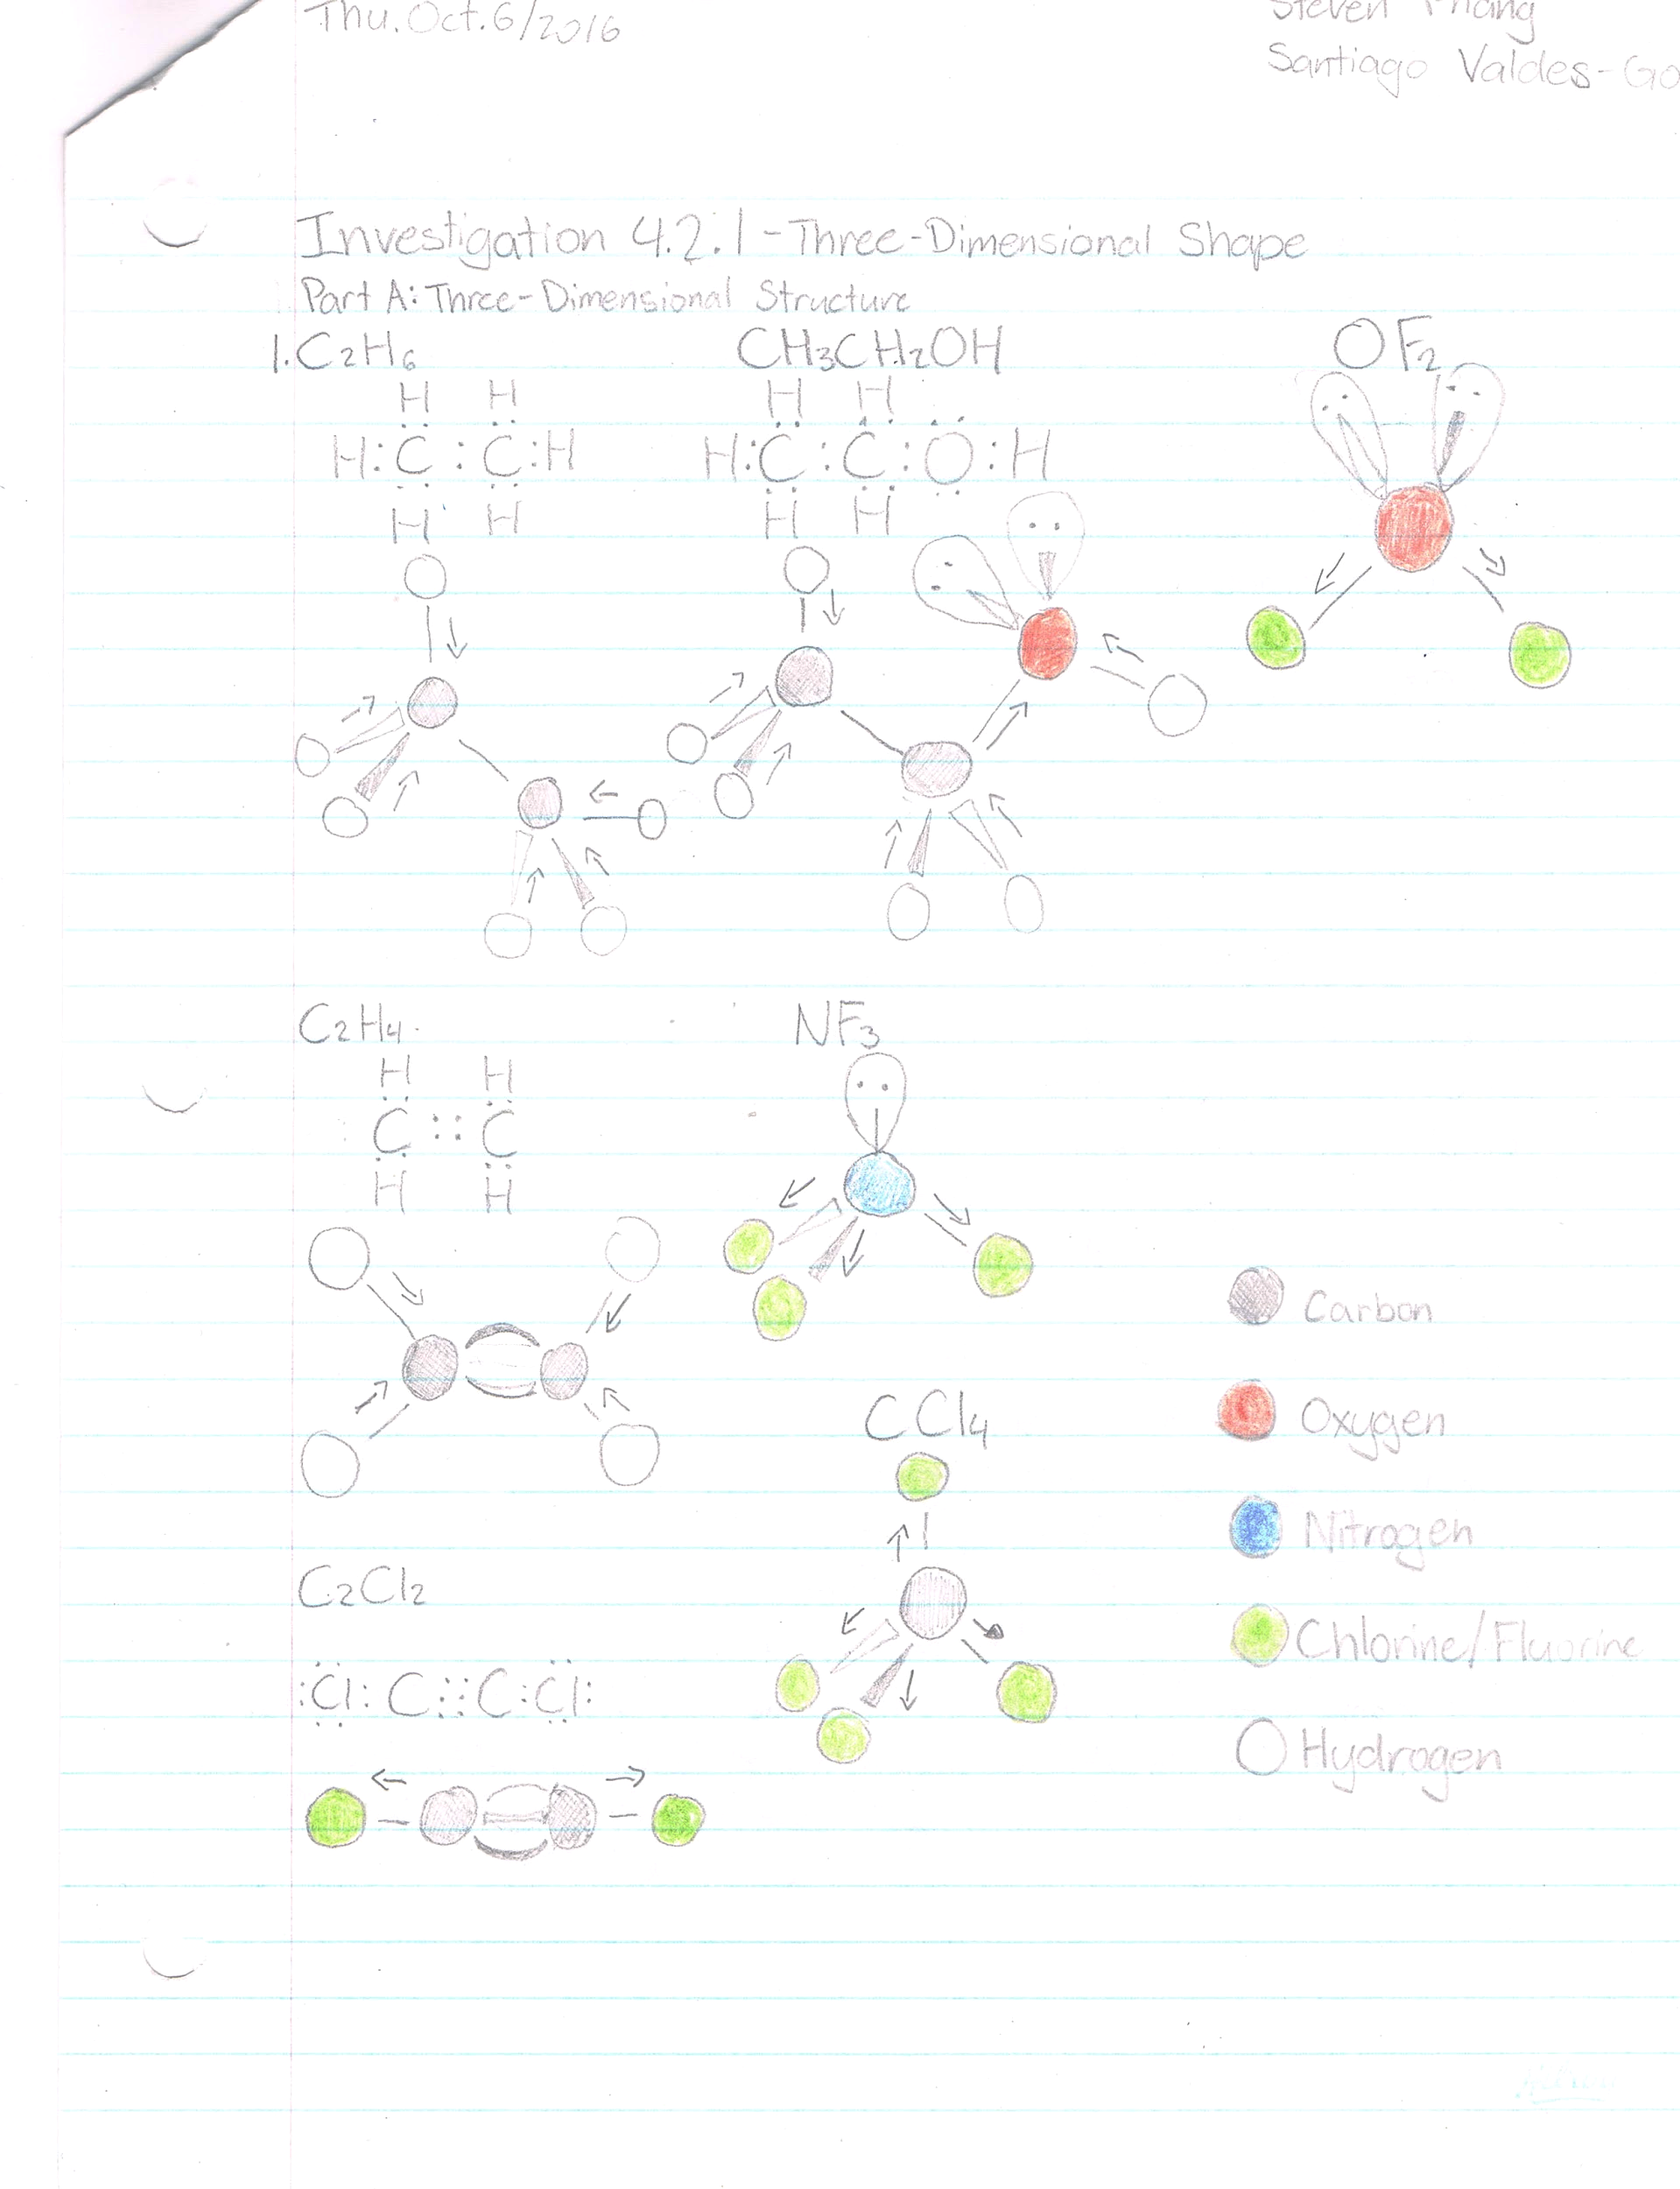 Thu. Oct. 6/2016
Steven
Santiago Valdes-Go
Investigation 4.2.1 - Three-Dimensional Shape
Part A: Three-Dimensional Structure
1. C2H6
H H
H:C:C:H
H H
CH3CH2OH
H H
H:C:C:O:H
H H
OF2
C2H4
H H
C::C
H H
NF3
CCl4
C2Cl2
:Cl:C:::C:Cl:
Carbon
Oxygen
Nitrogen
Chlorine/Fluorine
Hydrogen